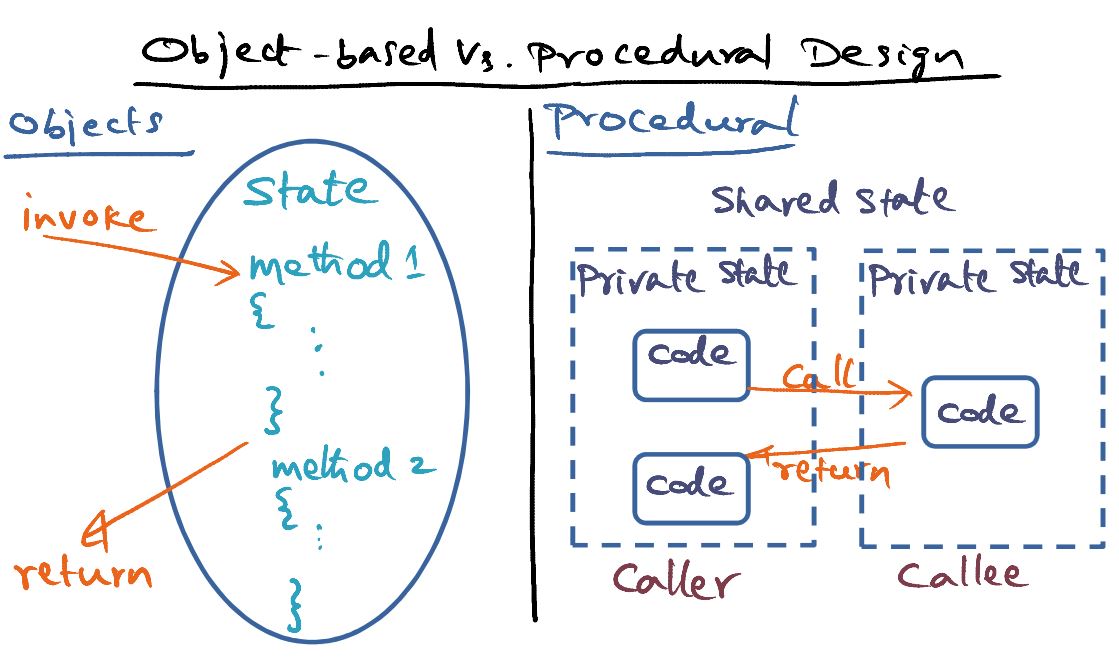 Object-based Vs. Procedural Design
Objects
invoke
State
method 1
{
:
}
method 2
{
:
}
return
Procedural
Shared State
Private State
Code
Code
Call
return
Caller
Private State
Code
Callee